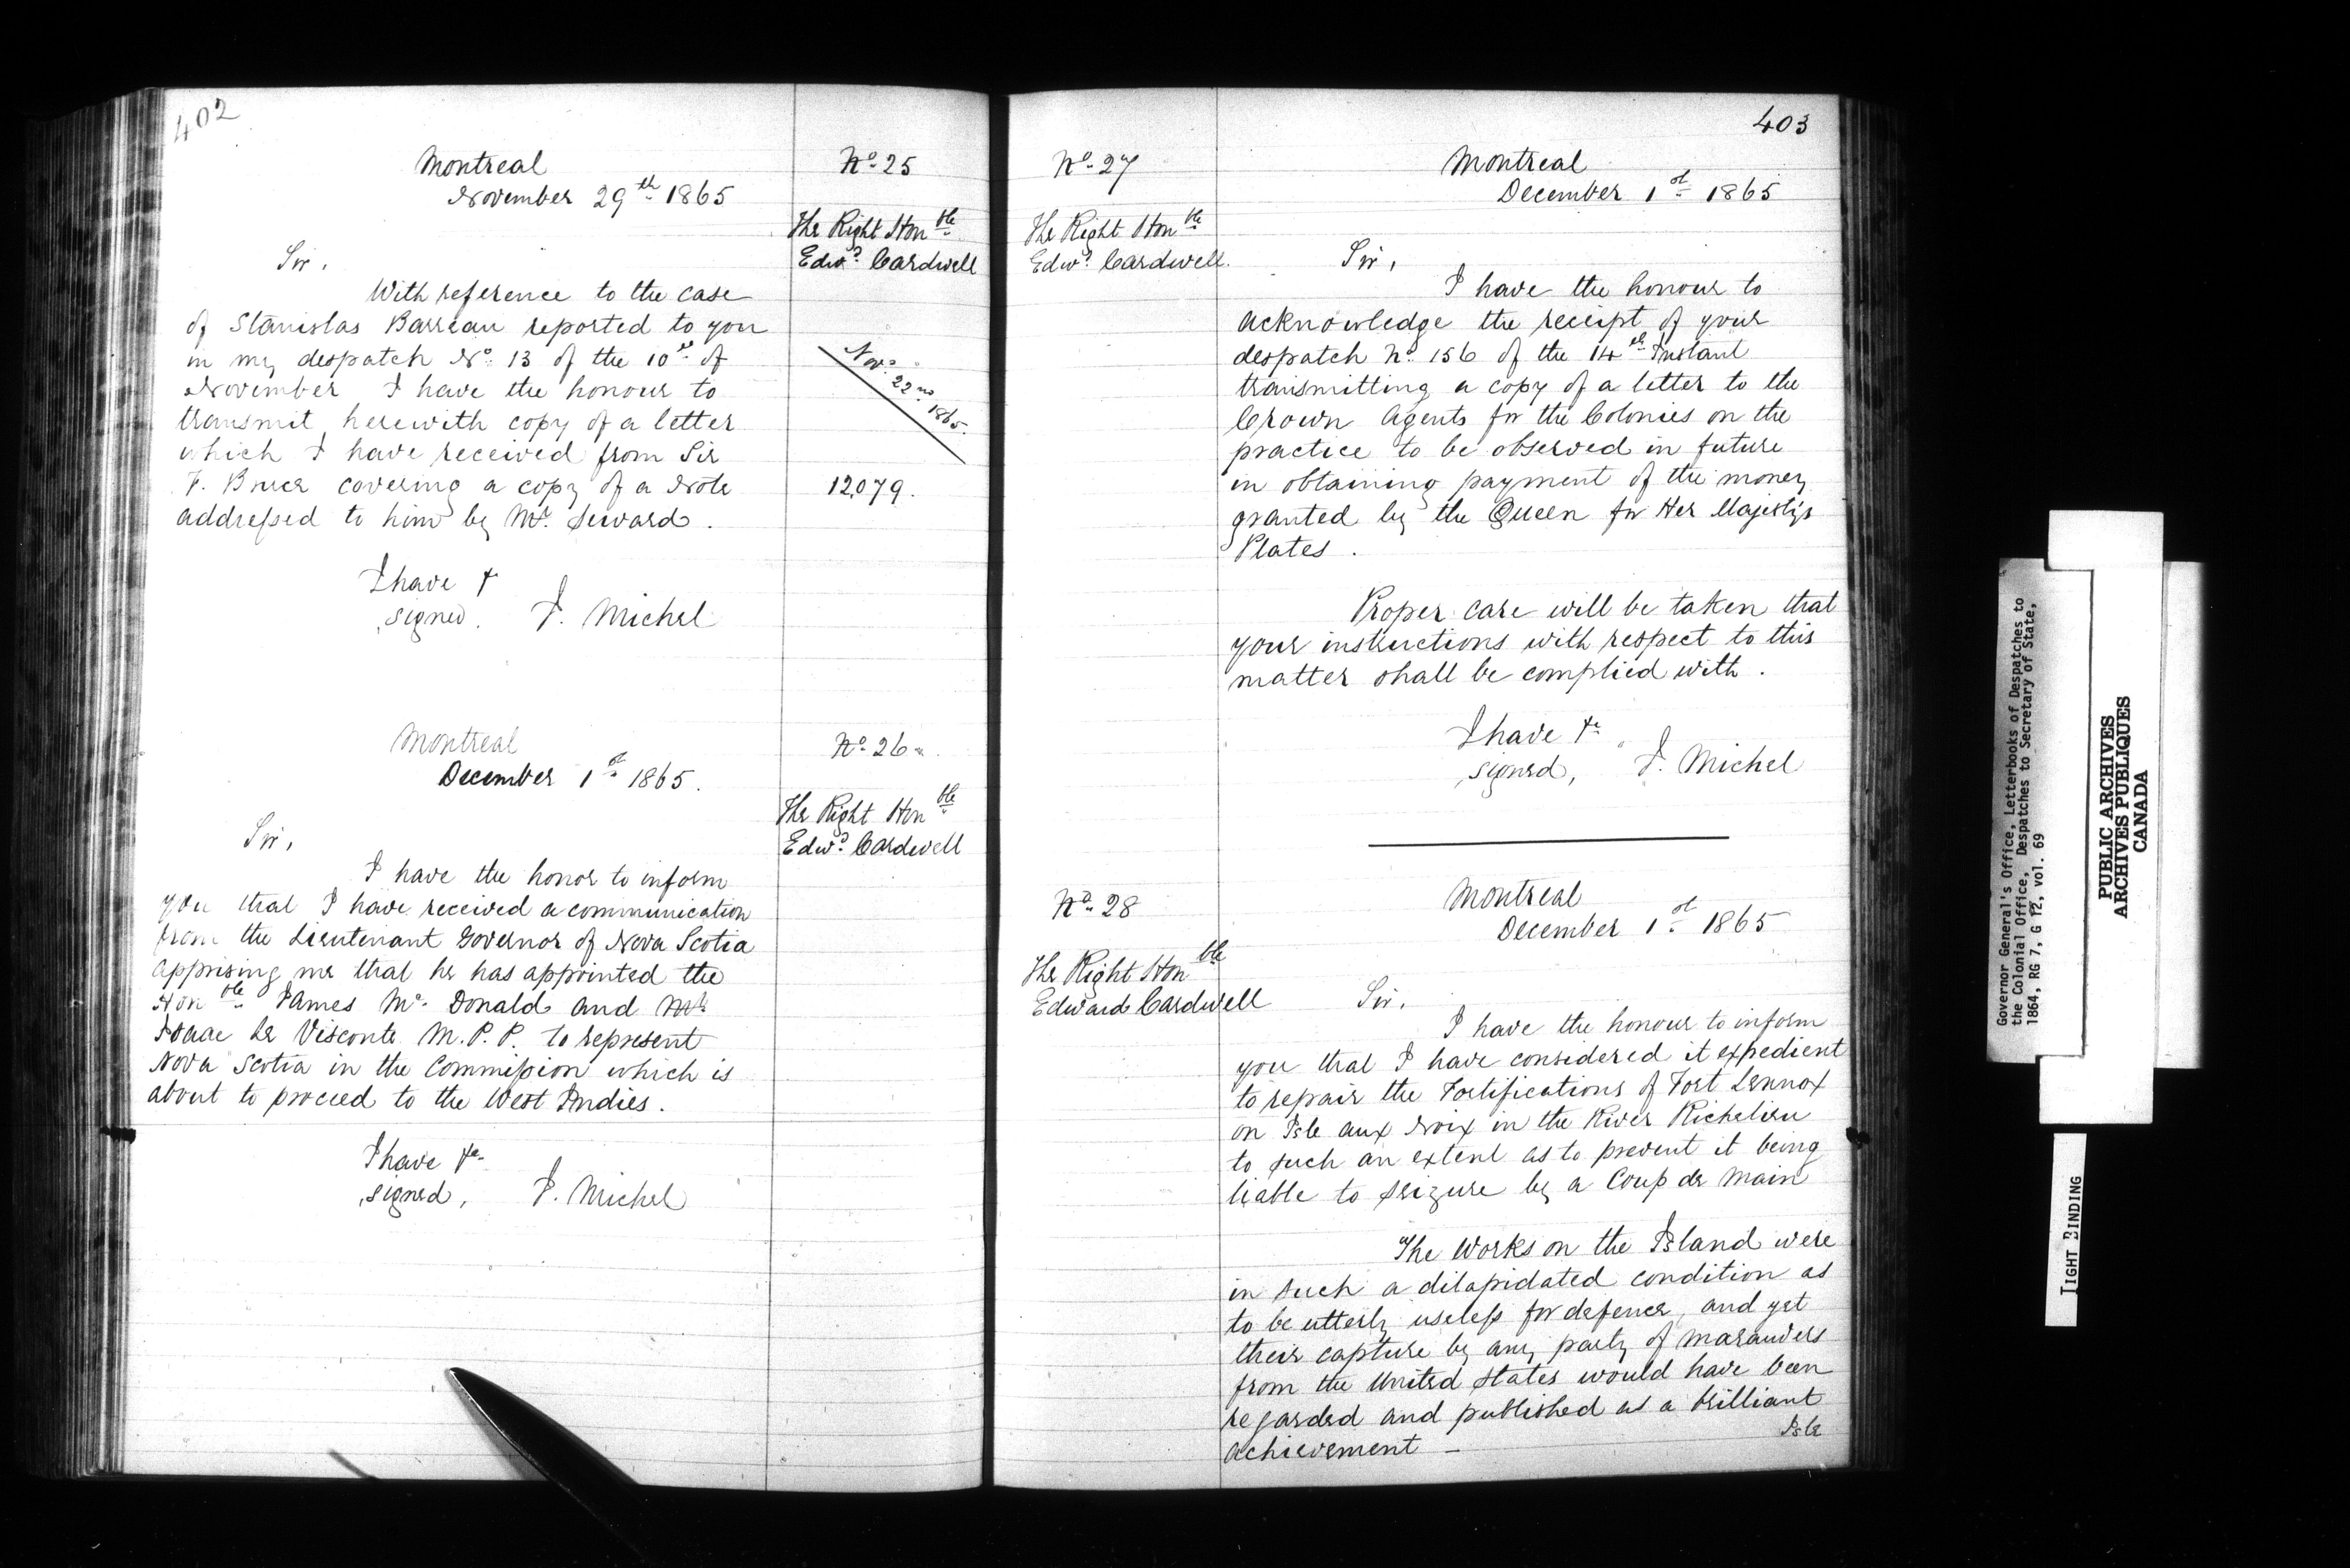 402
Montreal
November 29th 1865
No. 25
The Right Honble
Edwd. Cardwell
Sir,
With reference to the case
of Stanislas Barreau reported to you
in my despatch No. 13 of the 10th of
November I have the honour to
transmit herewith copy of a letter
which I have received from Sir
F. Bruce covering a copy of a Note
addressed to him by Mr. Seward.
Nov. 22nd 1865.
12,079.
I have &
signed. J. Michel
Montreal
December 1st 1865.
No. 26
The Right Honble
Edwd. Cardwell
Sir,
I have the honor to inform
you that I have received a communication
from the Lieutenant Governor of Nova Scotia
apprising me that he has appointed the
Honble James Mc. Donald and Mr.
Isaac Le Visconte M.P.P. to represent
Nova Scotia in the Commission which is
about to proceed to the West Indies.
I have &c
signed, J. Michel
403
No. 27
The Right Honble
Edwd. Cardwell.
Montreal
December 1st 1865
Sir,
I have the honour to
acknowledge the receipt of your
despatch No. 156 of the 14th Instant
transmitting a copy of a letter to the
Crown Agents for the Colonies on the
practice to be observed in future
in obtaining payment of the money
granted by the Queen for Her Majesty's
Plates.
Proper care will be taken that
your instructions with respect to this
matter shall be complied with.
I have &c
signed, J. Michel
No. 28
The Right Honble
Edward Cardwell
Montreal
December 1st 1865
Sir,
I have the honour to inform
you that I have considered it expedient
to repair the Fortifications of Fort Lennox
on Isle aux Noix in the River Richelieu
to such an extent as to prevent it being
liable to seizure by a Coup de Main
The Works on the Island were
in such a dilapidated condition as
to be utterly useless for defence, and yet
their capture by any party of marauders
from the United States would have been
regarded and published as a brilliant
achievement –
Isle
Governor General's Office, Letterbooks of Despatches to
the Colonial Office, Despatches to Secretary of State,
1864, RG 7, G 12, vol. 69
PUBLIC ARCHIVES
ARCHIVES PUBLIQUES
CANADA
TIGHT BINDING